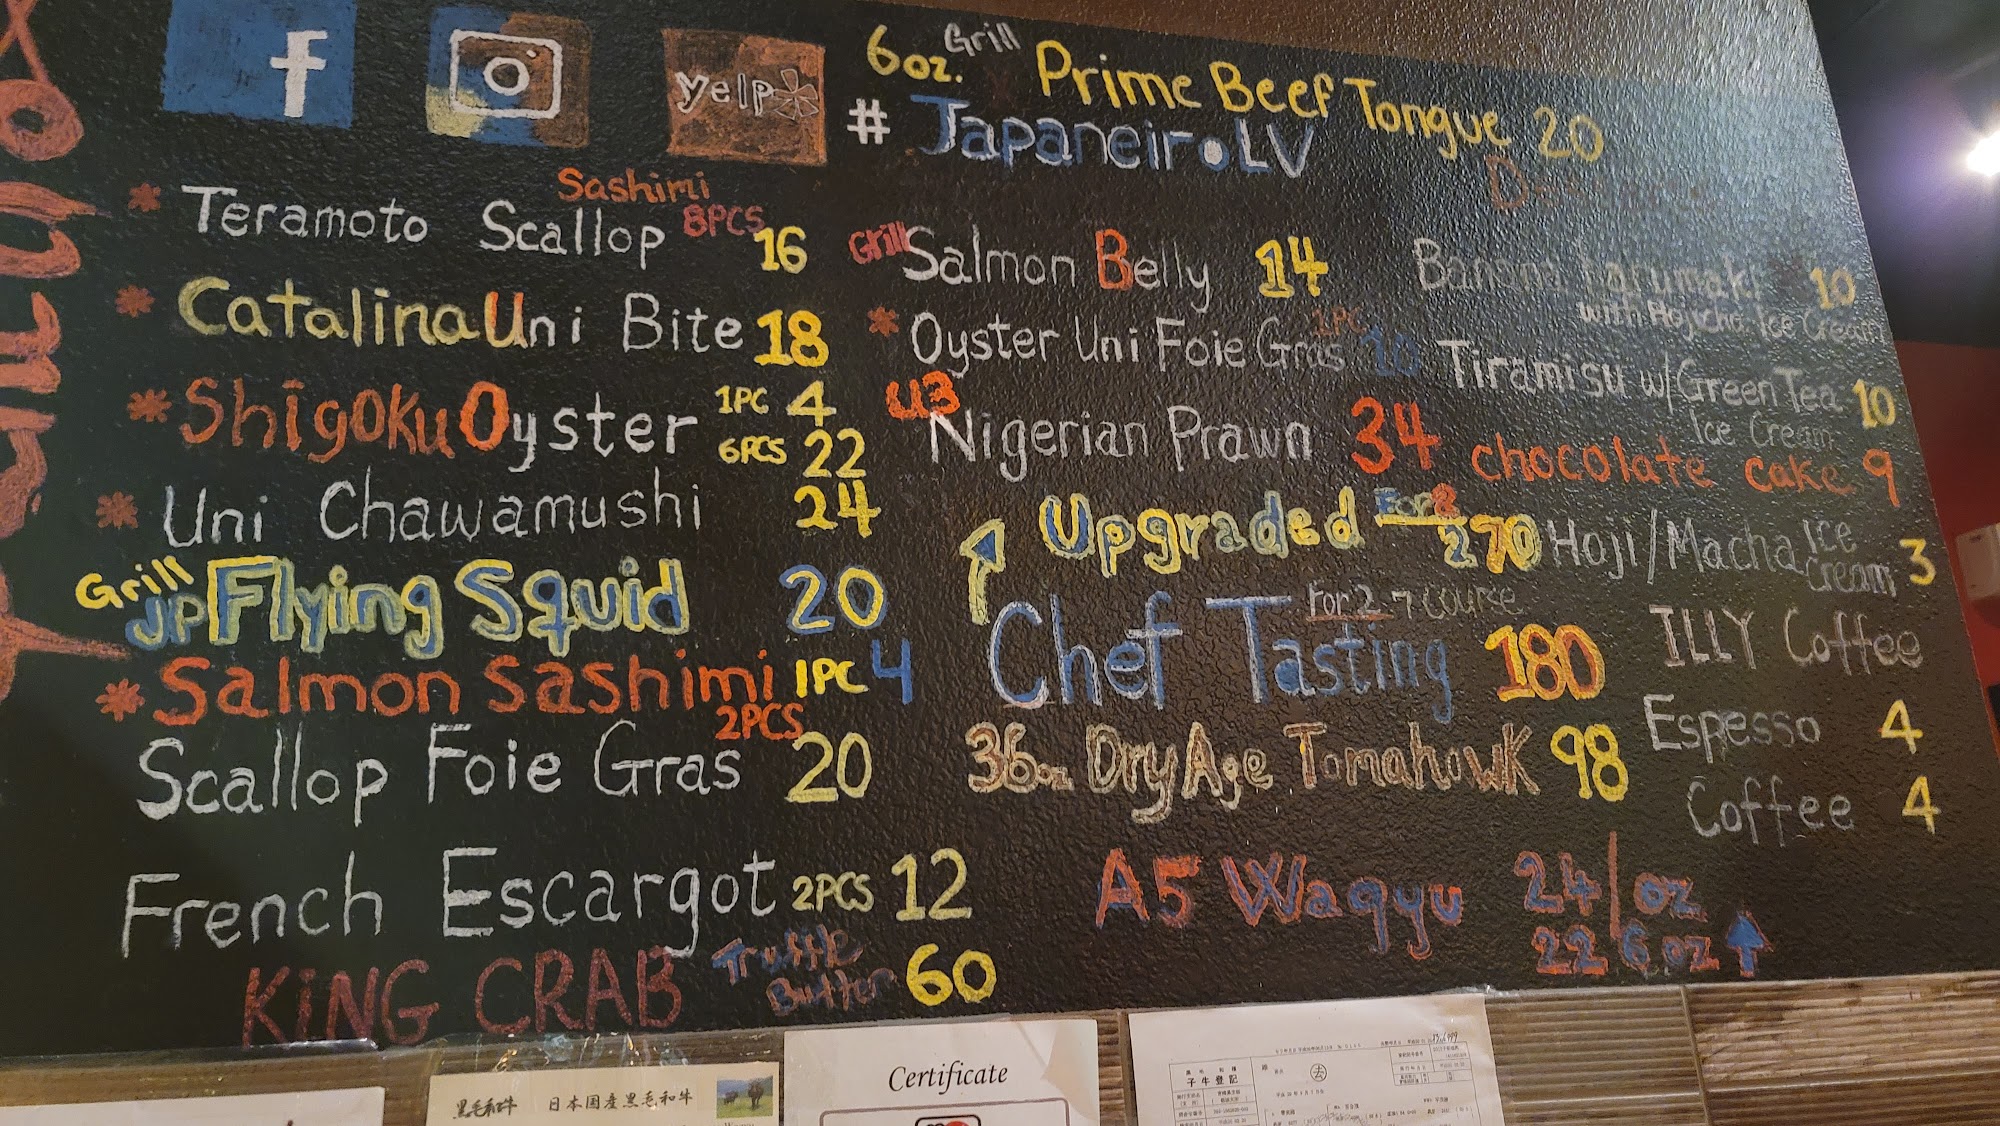 f
yelp
6oz. Grill Prime Beef Tongue 20
# JapaneiroLV
* Teramoto Scallop Sashimi 8PCS 16
* Catalina Uni Bite 18
* Shigoku Oyster 1PC 4
6PCS 22
* Uni Chawamushi 24
Grill JP Flying Squid 20
* Salmon Sashimi 1PC 4
2PCS
Scallop Foie Gras 20
French Escargot 2PCS 12
KING CRAB Truffle Butter 60
Grill Salmon Belly 14
* Oyster Uni Foie Gras 1PC 10
U3 Nigerian Prawn 34
Upgraded For 2 270
Chef Tasting For 2 7 course 180
36oz Dry Age Tomahowk 98
A5 Wagyu 24/oz
22 6oz
Banana harumaki 10
with Hojicha Ice Cream
Tiramisu w/Green Tea 10
Ice Cream
chocolate cake 9
Hoji/Macha Ice Cream 3
ILLY Coffee
Espresso 4
Coffee 4
黒毛和牛 日本国産黒毛和牛
Certificate
子牛登記